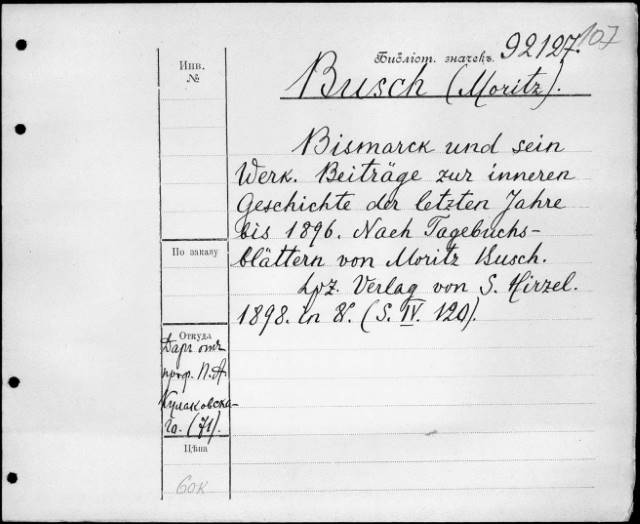 107
Библіот. значекъ 92127.
Инв.
№
Busch (Moritz).
Bismarck und sein
Werk. Beiträge zur inneren
Geschichte der letzten Jahre
bis 1896. Nach Tagebuchs-
blättern von Moritz Busch.
Lpz. Verlag von S. Hirzel.
1898. in 8º. (S. IV. 120).
По заказу
Откуда
Даръ отъ
проф. П. А.
Кулаковска-
го. (71).
Цѣна
60к